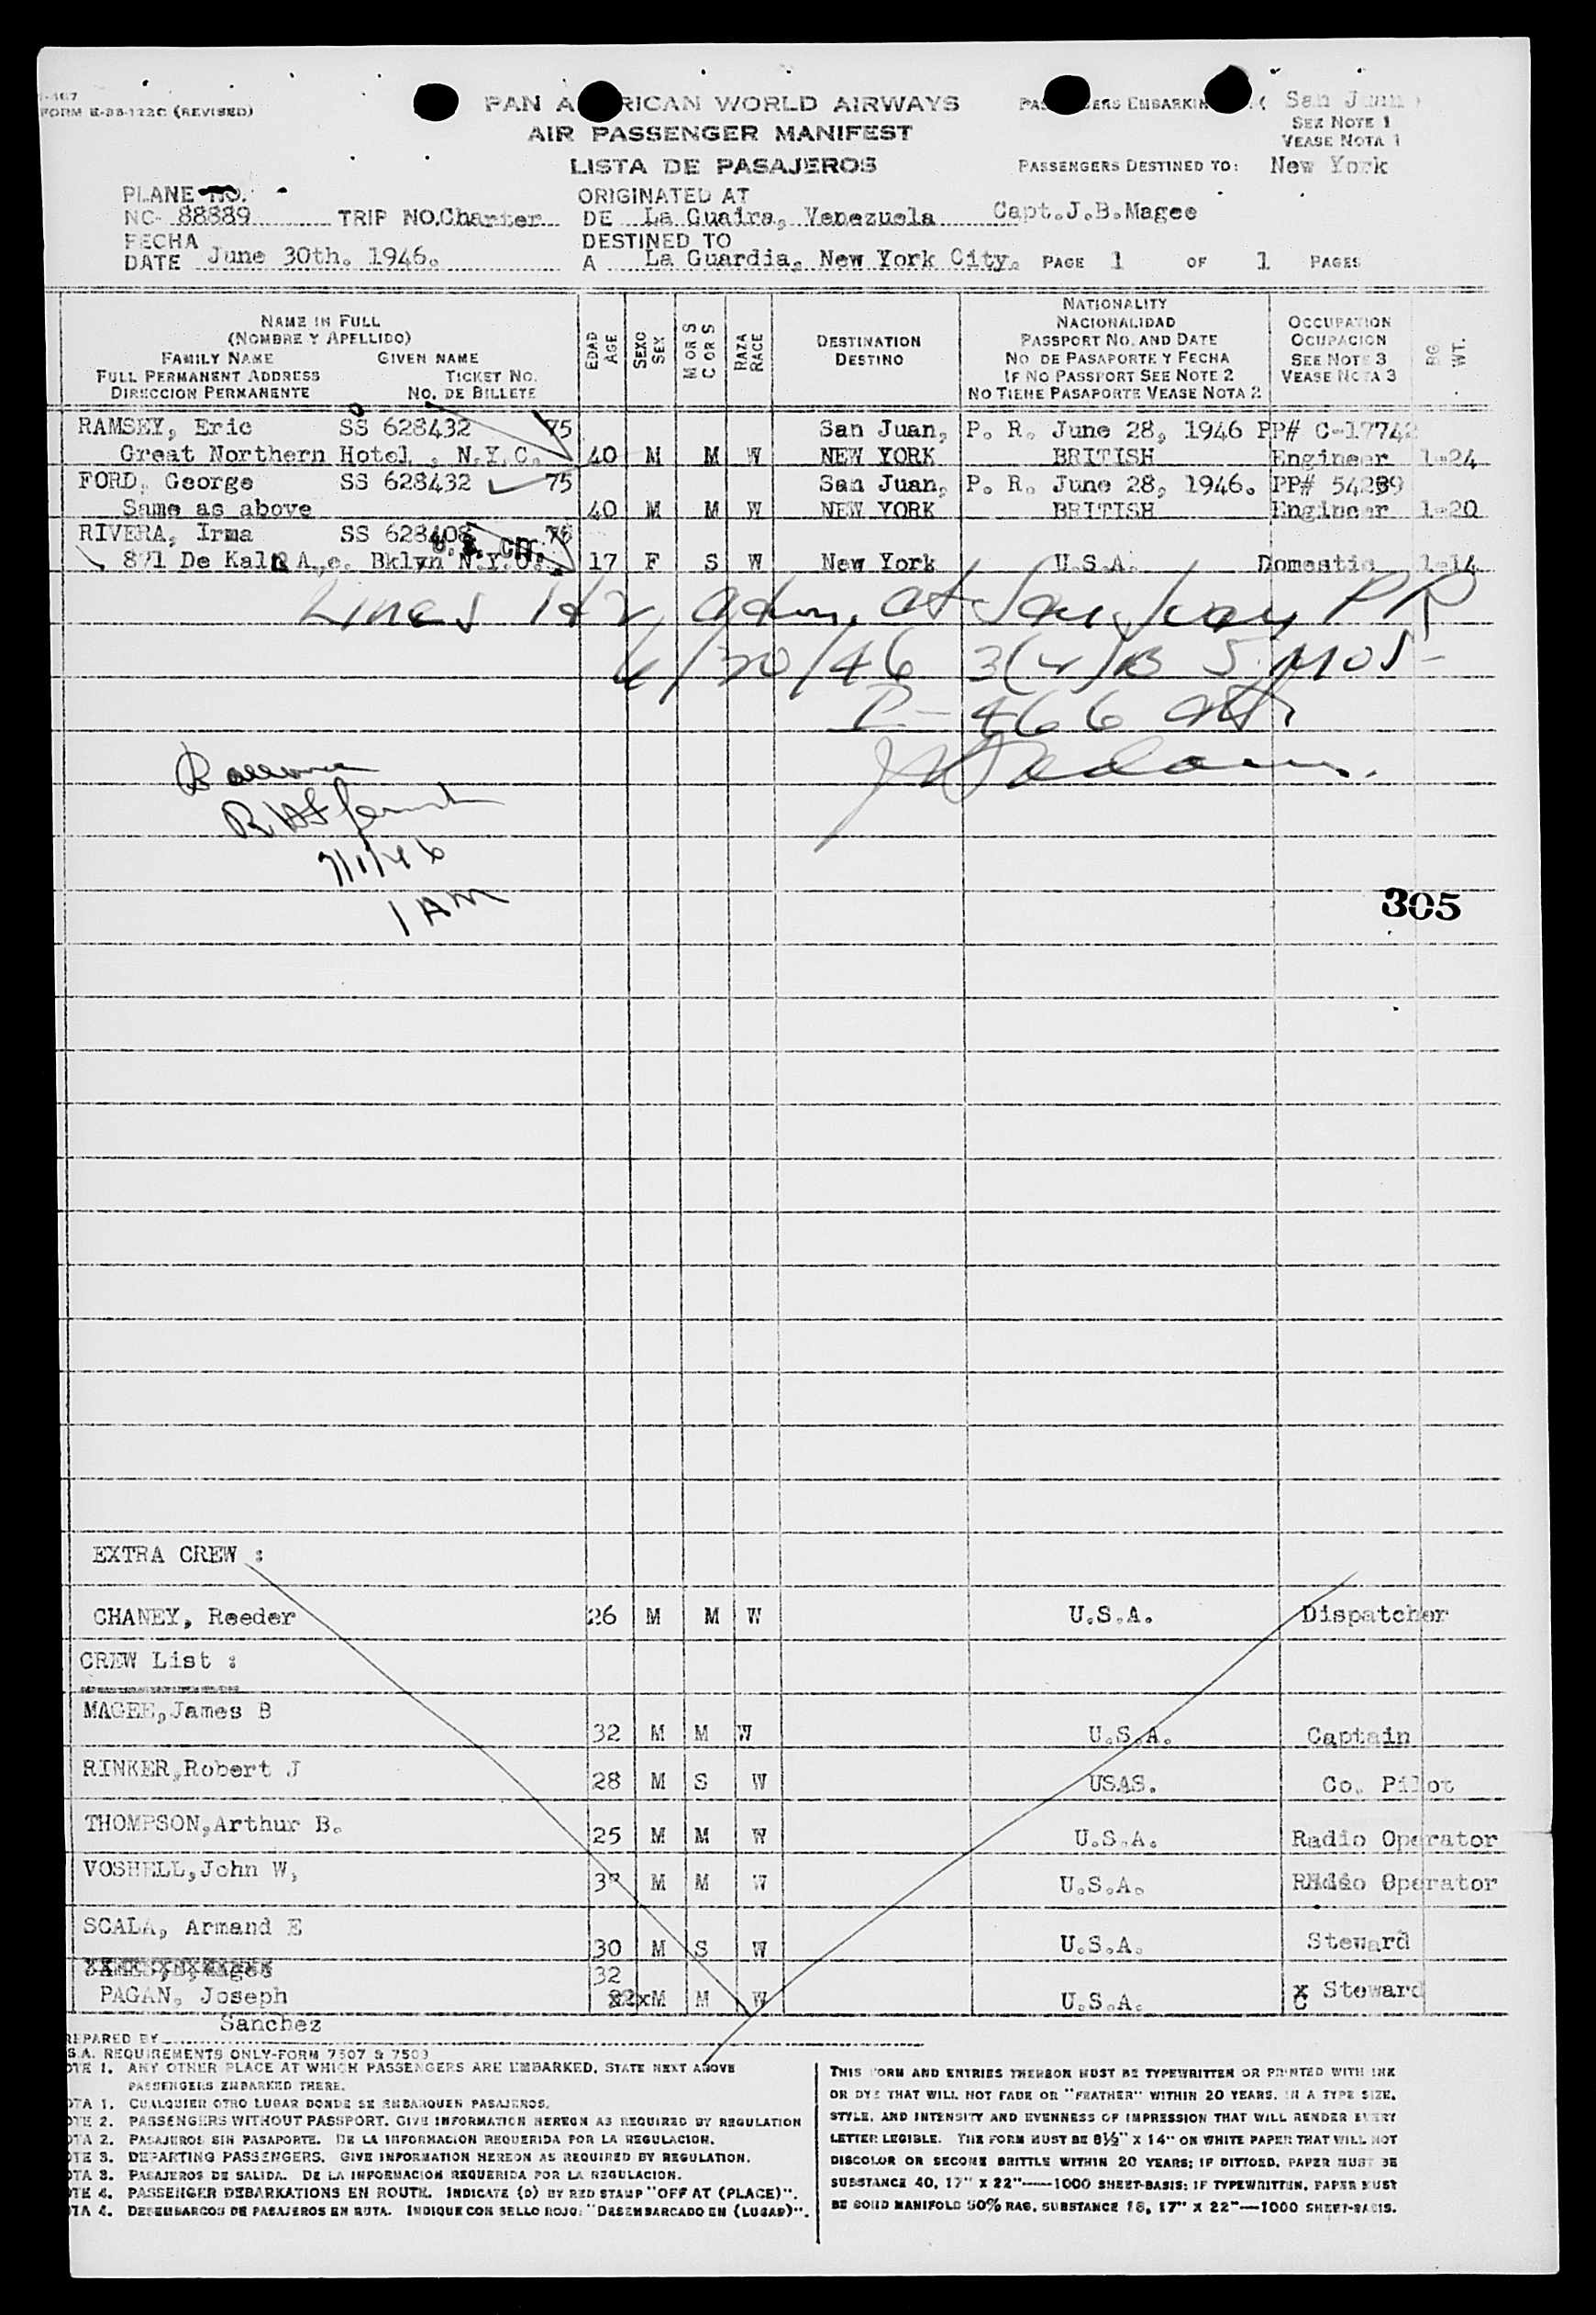 FORM E-88-122C (REVISED)
PAN A RICAN WORLD AIRWAYS
AIR PASSENGER MANIFEST
LISTA DE PASAJEROS
PAS ERS EMBARKIN San Juan
SEE NOTE 1
VEASE NOTA 1
PASSENGERS DESTINED TO: New York
PLANE NO.
NC- 88889 TRIP NO. Charter
ORIGINATED AT
DE La Guaira, Venezuela Capt.J.B.Magee
FECHA
DATE June 30th. 1946.
DESTINED TO
A La Guardia, New York City. PAGE 1 OF 1 PAGES
NAME IN FULL
(NOMBRE Y APELLIDO)
FAMILY NAME GIVEN NAME
FULL PERMANENT ADDRESS TICKET NO.
DIRECCION PERMANENTE NO. DE BILLETE
EDAD AGE
SEXO SEX
M OR S
C OR S
RAZA RACE
DESTINATION
DESTINO
NATIONALITY
NACIONALIDAD
PASSPORT NO. AND DATE
NO. DE PASAPORTE Y FECHA
IF NO PASSPORT SEE NOTE 2
NO TIENE PASAPORTE VEASE NOTA 2
OCCUPATION
OCUPACION
SEE NOTE 3
VEASE NOTA 3
BG. WT.
RAMSEY, Eric SS 628432 75 San Juan, P. R. June 28, 1946 PP# C-17742
Great Northern Hotel , N.Y.C. 40 M M W NEW YORK BRITISH Engineer 1-24
FORD, George SS 628432 75 San Juan, P. R. June 28, 1946. PP# 54239
Same as above 40 M M W NEW YORK BRITISH Engineer 1-20
RIVERA, Irma SS 628408 75
U. S. CIT.
871 De Kalb Ave. Bklyn N.Y.C. 17 F S W New York U.S.A. Domestic 1-14
Lines 1&2 adm. at San Juan PR
6/30/46 3(2)B 5 mos-
I-466 att
7/1/46
1 AM
305
EXTRA CREW :
CHANEY, Reeder 26 M M W U.S.A. Dispatcher
CREW List :
MAGEE,James B 32 M M W U.S.A. Captain
RINKER,Robert J 28 M S W USAS. Co. Pilot
THOMPSON,Arthur B. 25 M M W U.S.A. Radio Operator
VOSHELL,John W, M M W U.S.A. Radio Operator
SCALA, Armand E 30 M S W U.S.A. Steward
32
PAGAN, Joseph x22xM M W U.S.A. x Steward
Sanchez
REPARED BY
S.A. REQUIREMENTS ONLY-FORM 7507 & 7509
OTE 1. ANY OTHER PLACE AT WHICH PASSENGERS ARE EMBARKED, STATE NEXT ABOVE
PASSENGERS EMBARKED THERE.
OTA 1. CUALQUIER OTRO LUGAR DONDE SE EMBARQUEN PASAJEROS.
OTE 2. PASSENGERS WITHOUT PASSPORT. GIVE INFORMATION HEREON AS REQUIRED BY REGULATION
OTA 2. PASAJEROS SIN PASAPORTE. DE LA INFORMACION REQUERIDA POR LA REGULACION.
OTE 3. DEPARTING PASSENGERS. GIVE INFORMATION HEREON AS REQUIRED BY REGULATION.
OTA 3. PASAJEROS DE SALIDA. DE LA INFORMACION REQUERIDA POR LA REGULACION.
OTE 4. PASSENGER DEBARKATIONS EN ROUTE. INDICATE (D) BY RED STAMP "OFF AT (PLACE)".
OTA 4. DESEMBARCOS DE PASAJEROS EN RUTA. INDIQUE CON SELLO ROJO: "DESEMBARCADO EN (LUGAR)".
THIS FORM AND ENTRIES THEREON MUST BE TYPEWRITTEN OR PRINTED WITH INK
OR DYE THAT WILL NOT FADE OR "FEATHER" WITHIN 20 YEARS, IN A TYPE SIZE,
STYLE, AND INTENSITY AND EVENNESS OF IMPRESSION THAT WILL RENDER EVERY
LETTER LEGIBLE. THE FORM MUST BE 8½" X 14" ON WHITE PAPER THAT WILL NOT
DISCOLOR OR BECOME BRITTLE WITHIN 20 YEARS; IF DITTOED, PAPER MUST BE
SUBSTANCE 40, 17" X 22"—1000 SHEET-BASIS; IF TYPEWRITTEN, PAPER MUST
BE BOND MANIFOLD 50% RAG, SUBSTANCE 16, 17" X 22"—1000 SHEET-BASIS.